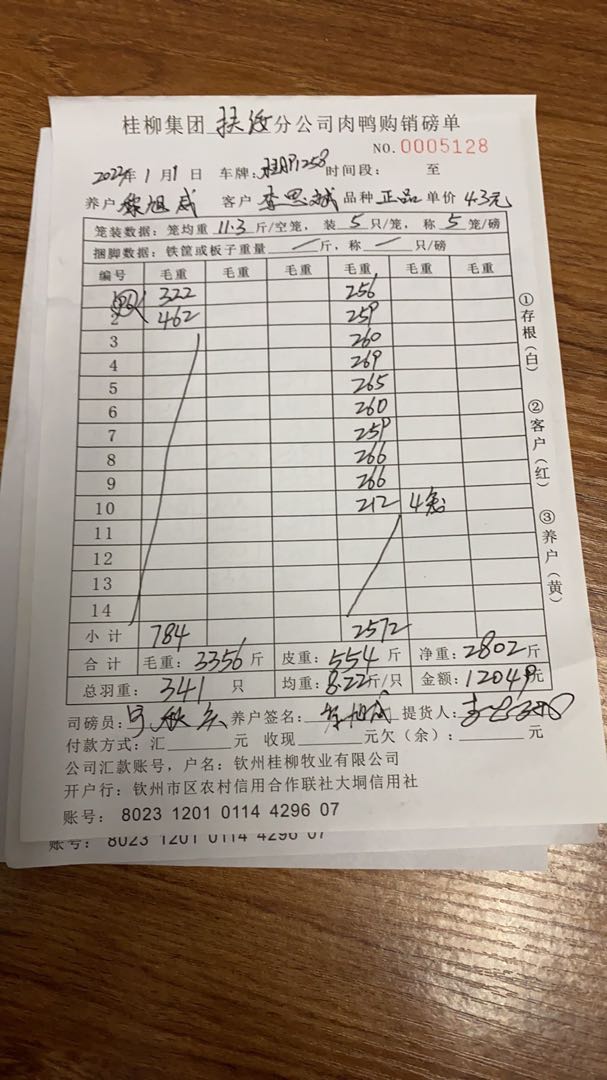 桂柳集团 扶绥 分公司肉鸭购销磅单
NO.0005128
2022年1月1日 车牌: 1258 时间段: 至
养户 旭成 客户 李思斌 品种 正品 单价 4.3元
笼装数据: 笼均重 11.3 斤/空笼, 装 5 只/笼, 称 5 笼/磅
捆脚数据: 铁筐或板子重量 — 斤, 称 — 只/磅
编号 毛重 毛重 毛重 毛重 毛重 毛重
322 256
2 462 259
3 260
4 269
5 265
6 260
7 259
8 266
9 266
10 212 4
11
12
13
14
小计 784 2572
合计 毛重: 3356 斤 皮重: 554 斤 净重: 2802 斤
总羽重: 341 只 均重: 8.22 斤/只 金额: 12049 元
①存根(白)
②客户(红)
③养户(黄)
司磅员: 养户签名: 旭成 提货人:
付款方式: 汇 元 收现 元欠(余): 元
公司汇款账号, 户名: 钦州桂柳牧业有限公司
开户行: 钦州市区农村信用合作联社大垌信用社
账号: 8023 1201 0114 4296 07
账号: 8023 1201 0114 4296 07